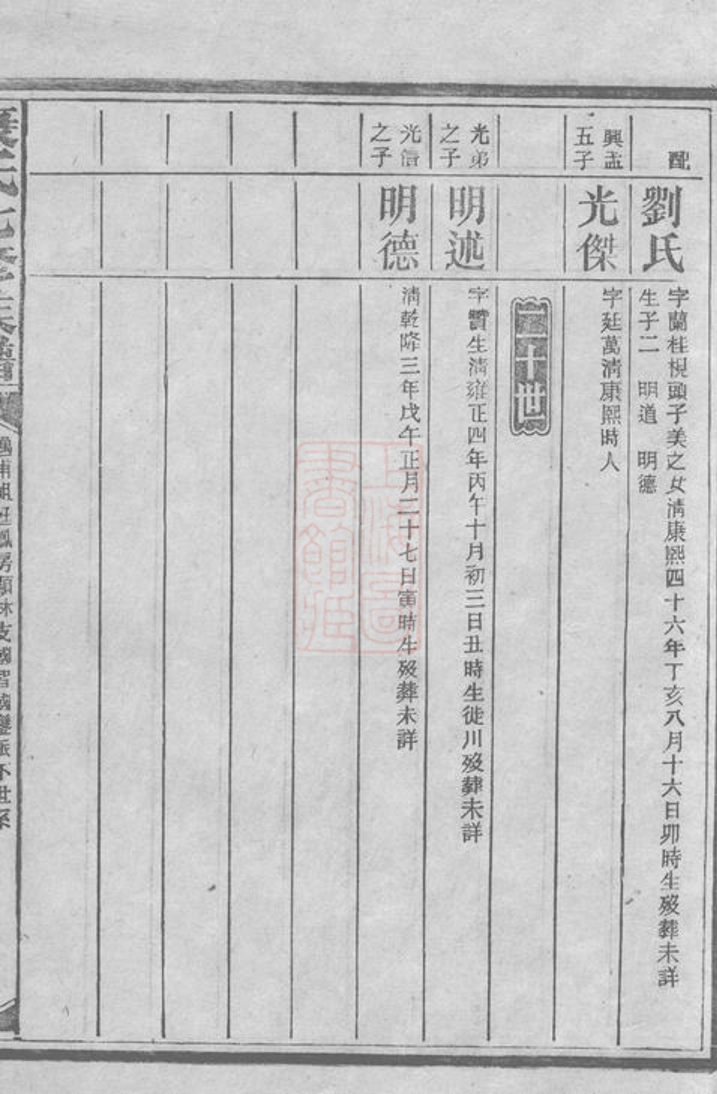 配
劉氏
字蘭桂梘頭子美之女清康熙四十六年丁亥八月十六日卯時生殁葬未詳
生子二 明道 明德
興孟
五子
光傑
字廷萬清康熙時人
二十世
光弟
之子
明述
字寶生清雍正四年丙午十月初三日丑時生徙川殁葬未詳
光信
之子
明德
清乾隆三年戊午正月二十七日寅時生殁葬未詳
氏七修族譜
房 支國 國 派下世系
上海圖
書館藏